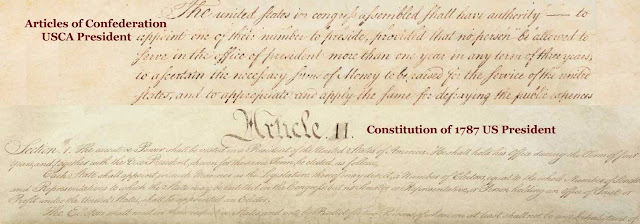 Articles of Confederation
USCA President
The united states in congress assembled shall have authority — to
appoint one of their number to preside, provided that no person be allowed to
serve in the office of president more than one year in any term of three years,
to ascertain the necessary sums of Money to be raised for the service of the united
states, and to appropriate and apply the same for defraying the public expences
Article. II.
Constitution of 1787 US President
Section. 1. The executive Power shall be vested in a President of the United States of America. He shall hold his Office during the Term of four
Years, and, together with the Vice President, chosen for the same Term, be elected, as follows
Each State shall appoint, in such Manner as the Legislature thereof may direct, a Number of Electors, equal to the whole Number of Senators
and Representatives to which the State may be entitled in the Congress: but no Senator or Representative, or Person holding an Office of Trust or
Profit under the United States, shall be appointed an Elector.
The Electors shall meet in their respective States, and vote by Ballot for two Persons, of whom one at least shall not be an Inhabitant of